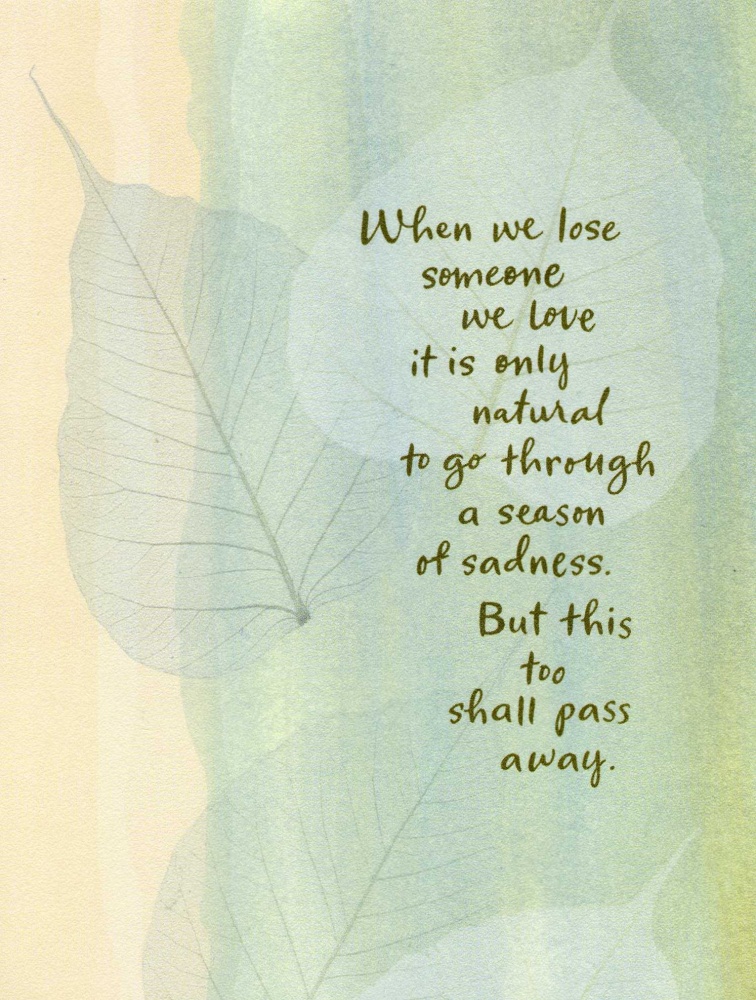 When we lose
someone
we love
it is only
natural
to go through
a season
of sadness.
But this
too
shall pass
away.